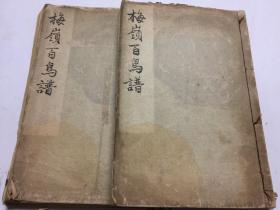 梅嶺百鳥譜
梅嶺百鳥譜